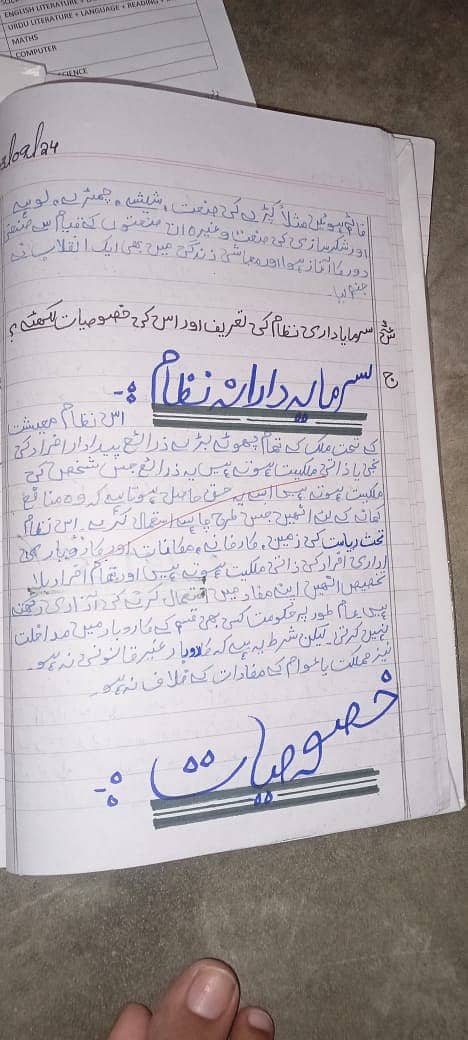 ENGLISH LITERATURE +
URDU LITERATURE + LANGUAGE + READING +
MATHS
COMPUTER
SCIENCE
/09/24
قائم ہوئیں مثلاً کپڑے کی صنعت، شیشہ، چمڑے، لوہے
اور شکر سازی کی صنعت وغیرہ ان صنعتوں کے قیام سے صنعتی
دور کا آغاز ہوا اور معاشی زندگی میں بھی ایک انقلاب نے
جنم لیا۔
سرمایاداری نظام کی تعریف اور اس کی خصوصیات لکھئے؟
ج
سرمایہ دارانہ نظام :-
اس نظام معیشت
کے تحت ملک کے تمام چھوٹے بڑے ذرائع پیداوار افراد کی
نجی یا ذاتی ملکیت ہوتے ہیں یہ ذرائع جس شخص کی
ملکیت ہوتے ہیں اسے یہ حق حاصل ہوتا ہے کہ وہ منافع
کمانے کے لئے انھیں جس طرح چاہے استعمال کرے۔ اس نظام
تحت ریاست کی زمین، کارخانے، مکانات اور کاروبار
اداری افراد کی ذاتی ملکیت ہوتے ہیں اور تمام افراد بلا
تخصیص انھیں اپنے مفاد میں استعمال کرنے کی آزادی رکھتے
ہیں عام طور پر حکومت کسی بھی قسم کے کاروبار میں مداخلت
نہیں کرتی۔ لیکن شرط یہ ہے کہ کاروبار غیر قانونی نہ ہو۔
نیز مملکت یا عوام کے مفادات کے خلاف نہ ہو۔
خصوصیات :-